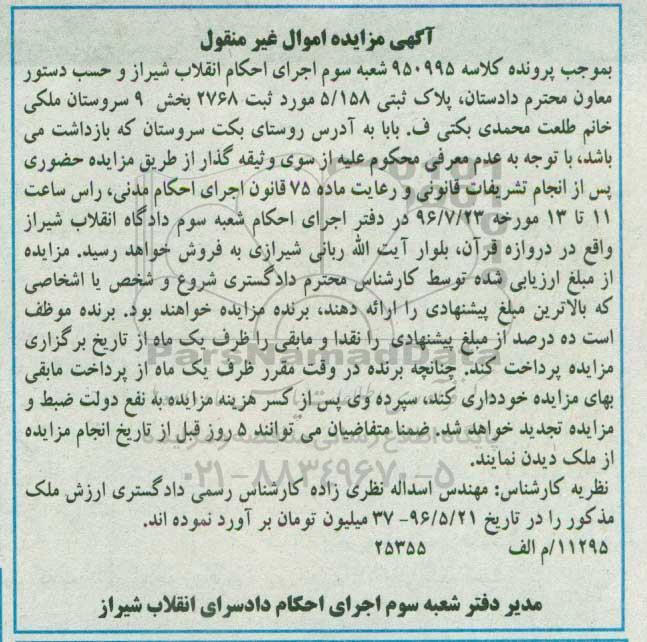 آگهی مزایده اموال غیر منقول
بموجب پرونده کلاسه ۹۵۰۹۹۵ شعبه سوم اجرای احکام انقلاب شیراز و حسب دستور
معاون محترم دادستان، پلاک ثبتی ۵/۱۵۸ مورد ثبت ۲۷۶۸ بخش ۹ سروستان ملکی
خانم طلعت محمدی بکتی ف. بابا به آدرس روستای بکت سروستان که بازداشت می
باشد، با توجه به عدم معرفی محکوم علیه از سوی وثیقه گذار از طریق مزایده حضوری
پس از انجام تشریفات قانونی و رعایت ماده ۷۵ قانون اجرای احکام مدنی، راس ساعت
۱۱ تا ۱۳ مورخه ۹۶/۷/۲۳ در دفتر اجرای احکام شعبه سوم دادگاه انقلاب شیراز
واقع در دروازه قرآن، بلوار آیت الله ربانی شیرازی به فروش خواهد رسید. مزایده
از مبلغ ارزیابی شده توسط کارشناس محترم دادگستری شروع و شخص یا اشخاصی
که بالاترین مبلغ پیشنهادی را ارائه دهند، برنده مزایده خواهند بود. برنده موظف
است ده درصد از مبلغ پیشنهادی را نقدا و مابقی را ظرف یک ماه از تاریخ برگزاری
مزایده پرداخت کند. چنانچه برنده در وقت مقرر ظرف یک ماه از پرداخت مابقی
بهای مزایده خودداری کند، سپرده وی پس از کسر هزینه مزایده به نفع دولت ضبط و
مزایده تجدید خواهد شد. ضمنا متقاضیان می توانند ۵ روز قبل از تاریخ انجام مزایده
از ملک دیدن نمایند.
نظریه کارشناس: مهندس اسداله نظری زاده کارشناس رسمی دادگستری ارزش ملک
مذکور را در تاریخ ۹۶/۵/۲۱- ۳۷ میلیون تومان بر آورد نموده اند.
۱۱۲۹۵/م الف ۲۵۳۵۵
مدیر دفتر شعبه سوم اجرای احکام دادسرای انقلاب شیراز
ParsNamadData
۰۲۱-۸۸۳۴۹۶۷۰-۵